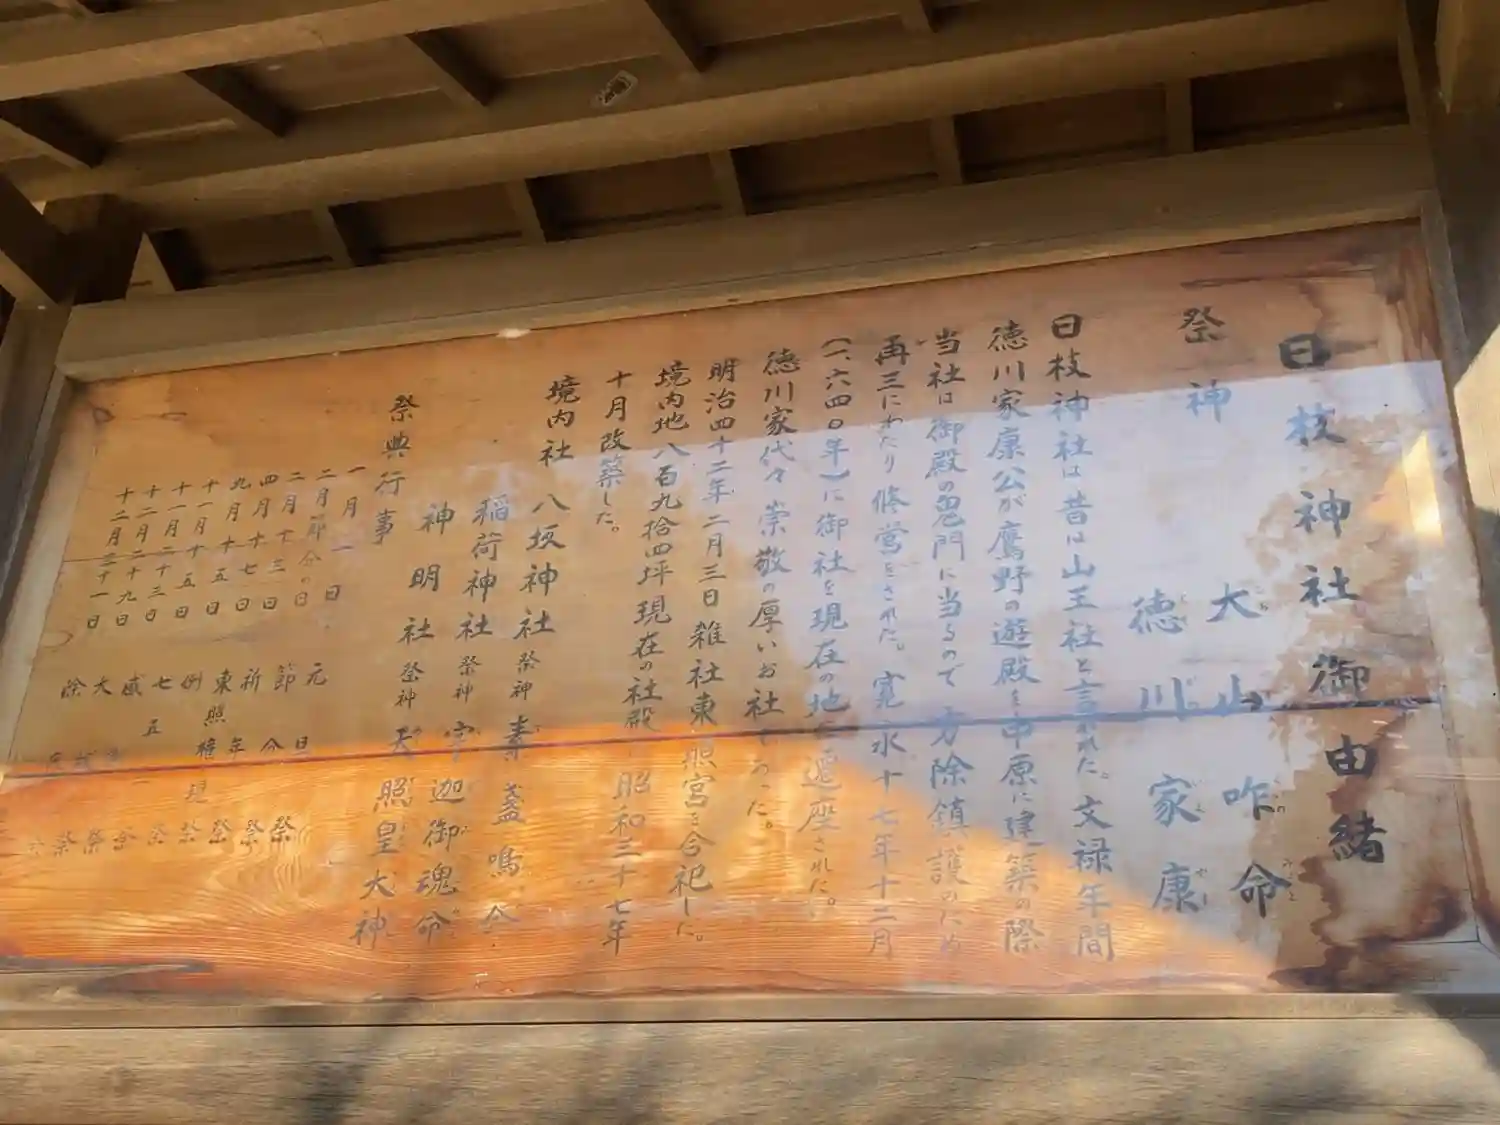 日枝神社御由緒
祭神 大山咋命
徳川家康
日枝神社は昔は山王社と言われた。文禄年間
徳川家康公が鷹野の遊殿を中原に建築の際
当社は御殿の鬼門に当るので方除鎮護のため
再三にわたり修営をされた。寛永十七年十二月
(一六四〇年)に御社を現在の地に遷座された。
徳川家代々崇敬の厚いお社であった。
明治四十二年二月三日雑社東照宮を合祀した。
境内地八百九拾四坪現在の社殿 昭和三十七年
十月改築した。
境内社 八坂神社 祭神 素盞鳴命
稲荷神社 祭神 宇迦御魂命
神明社 祭神 天照皇大神
祭典行事
一月一日 元旦祭
二月節分の日 節分祭
二月十三日 祈年祭
四月十七日 東照権現祭
九月十五日 例祭
十一月十五日 七五三祭
十一月二十三日 感 祭
十二月二十九日 大 祭
十二月三十一日 除 祭